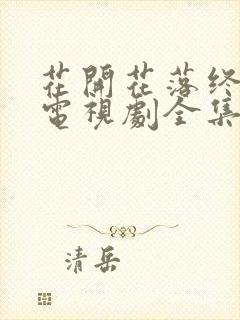 花開花落终
電視劇全集
清岳